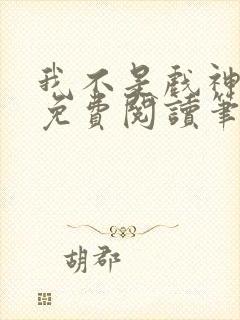 我不是戲神
免費閱讀筆
胡郡